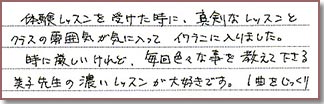 体験レッスンを受けた時に、真剣なレッスンと
クラスの雰囲気が気に入って イワクニに入りました。
時に厳しいけれど、毎回色々な事を教えて下さる
美子先生の濃いレッスンが大好きです。1曲をじっくり